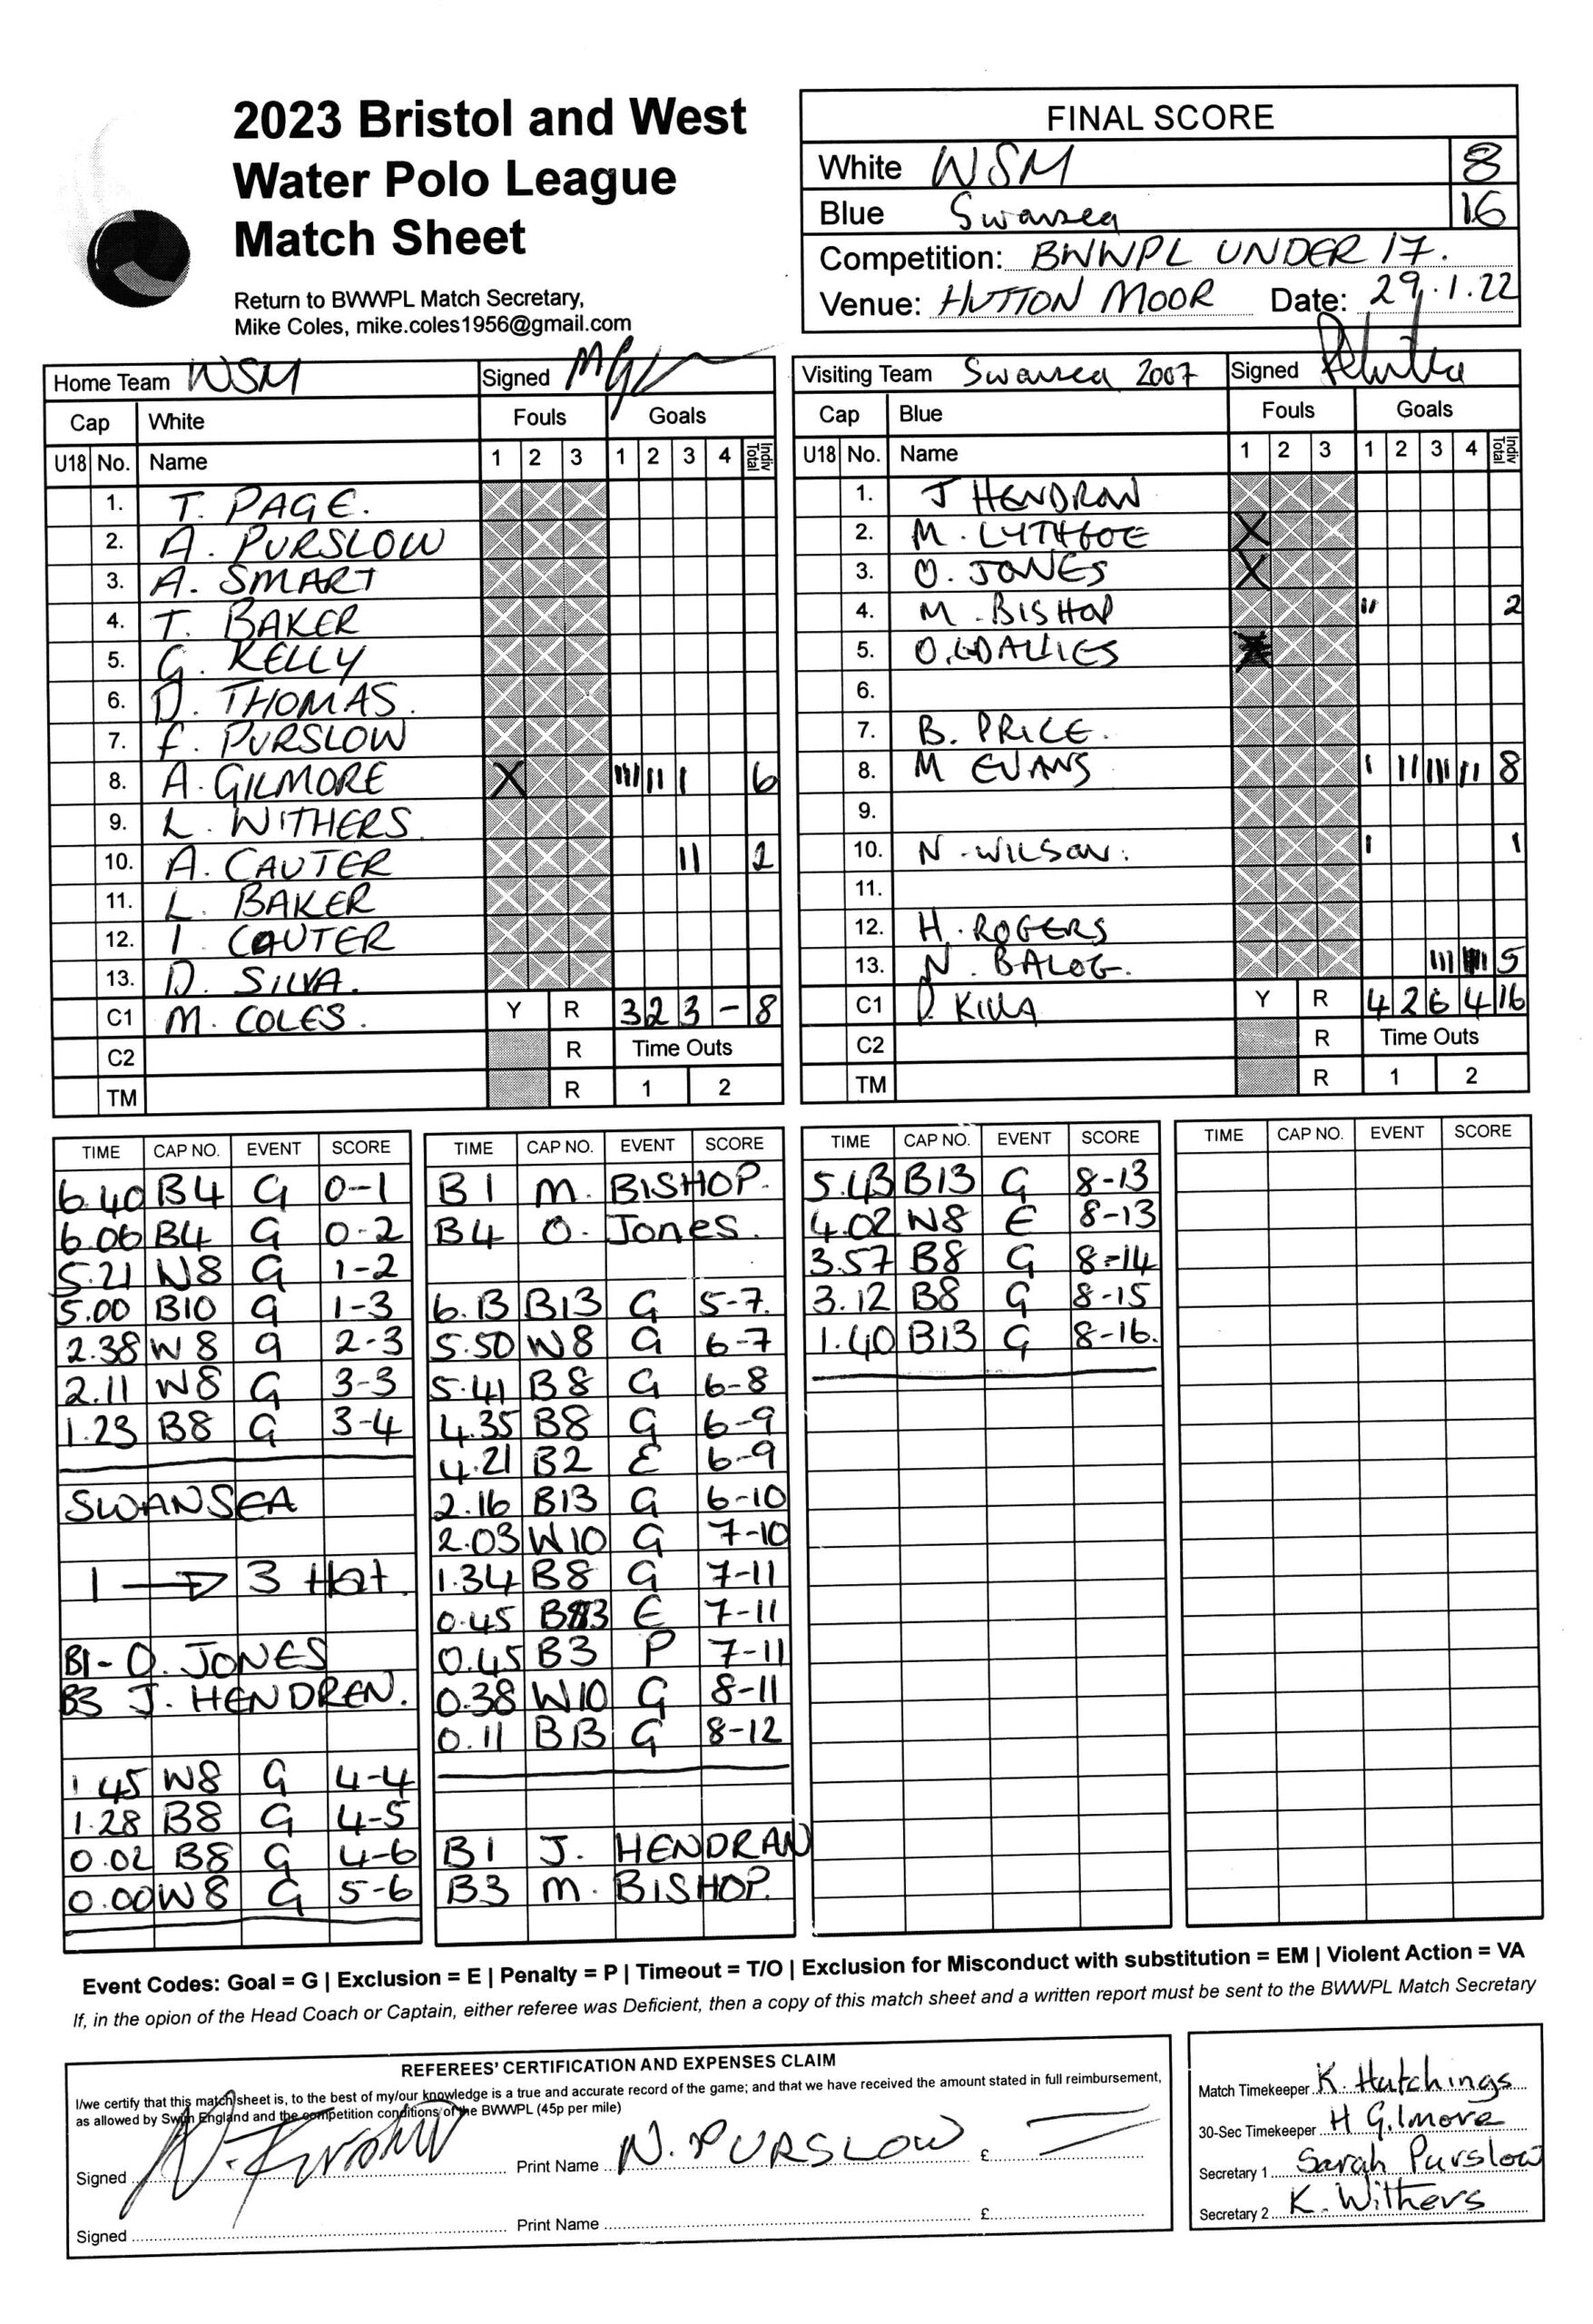 2023 Bristol and West
Water Polo League
Match Sheet
Return to BWWPL Match Secretary,
Mike Coles, mike.coles1956@gmail.com
FINAL SCORE
White WSM 8
Blue Swansea 16
Competition: BWWPL UNDER 17.
Venue: HUTTON MOOR Date: 29.1.22
Home Team WSM Signed
Cap White Fouls Goals
U18 No. Name 1 2 3 1 2 3 4 Indiv Total
1. T. PAGE.
2. A. PURSLOW
3. A. SMART
4. T. BAKER
5. G. KELLY
6. D. THOMAS.
7. F. PURSLOW
8. A. GILMORE X 6
9. L. WITHERS.
10. A. CAUTER 11 2
11. L. BAKER
12. I. CAUTER
13. D. SILVA.
C1 M. COLES. Y R 3 2 3 - 8
C2 R Time Outs
TM R 1 2
Visiting Team Swansea 2007 Signed
Cap Blue Fouls Goals
U18 No. Name 1 2 3 1 2 3 4 Indiv Total
1. J HENDRAN
2. M. LYTHGOE X
3. O. JONES X
4. M. BISHOP 11 2
5.
6.
7. B. PRICE.
8. M EVANS 8
9.
10. N. WILSON. 1 1
11.
12. H. ROGERS
13. N. BALOG. 5
C1 Y R 4 2 6 4 16
C2 R Time Outs
TM R 1 2
TIME CAP NO. EVENT SCORE
6.40 B4 G 0-1
6.06 B4 G 0-2
5.21 W8 G 1-2
5.00 B10 G 1-3
2.38 W8 G 2-3
2.11 W8 G 3-3
1.23 B8 G 3-4
SWANSEA
1 → 3 Hat.
B1- O. JONES
B3 J. HENDREN.
1.45 W8 G 4-4
1.28 B8 G 4-5
0.02 B8 G 4-6
0.00 W8 G 5-6
TIME CAP NO. EVENT SCORE
B1 M. BISHOP.
B4 O. Jones.
6.13 B13 G 5-7.
5.50 W8 G 6-7
5.41 B8 G 6-8
4.35 B8 G 6-9
4.21 B2 E 6-9
2.16 B13 G 6-10
2.03 W10 G 7-10
1.34 B8 G 7-11
0.45 B3 E 7-11
0.45 B3 P 7-11
0.38 W10 G 8-11
0.11 B13 G 8-12
B1 J. HENDRAN
B3 M. BISHOP.
TIME CAP NO. EVENT SCORE
5.43 B13 G 8-13
4.02 W8 E 8-13
3.57 B8 G 8-14
3.12 B8 G 8-15
1.40 B13 G 8-16.
TIME CAP NO. EVENT SCORE
Event Codes: Goal = G | Exclusion = E | Penalty = P | Timeout = T/O | Exclusion for Misconduct with substitution = EM | Violent Action = VA
If, in the opion of the Head Coach or Captain, either referee was Deficient, then a copy of this match sheet and a written report must be sent to the BWWPL Match Secretary
REFEREES' CERTIFICATION AND EXPENSES CLAIM
I/we certify that this match sheet is, to the best of my/our knowledge is a true and accurate record of the game; and that we have received the amount stated in full reimbursement,
as allowed by Swim England and the competition conditions of the BWWPL (45p per mile)
Signed Print Name N. PURSLOW £
Signed Print Name £
Match Timekeeper K. Hutchings
30-Sec Timekeeper H Gilmore
Secretary 1 Sarah Purslow
Secretary 2 K. Withers